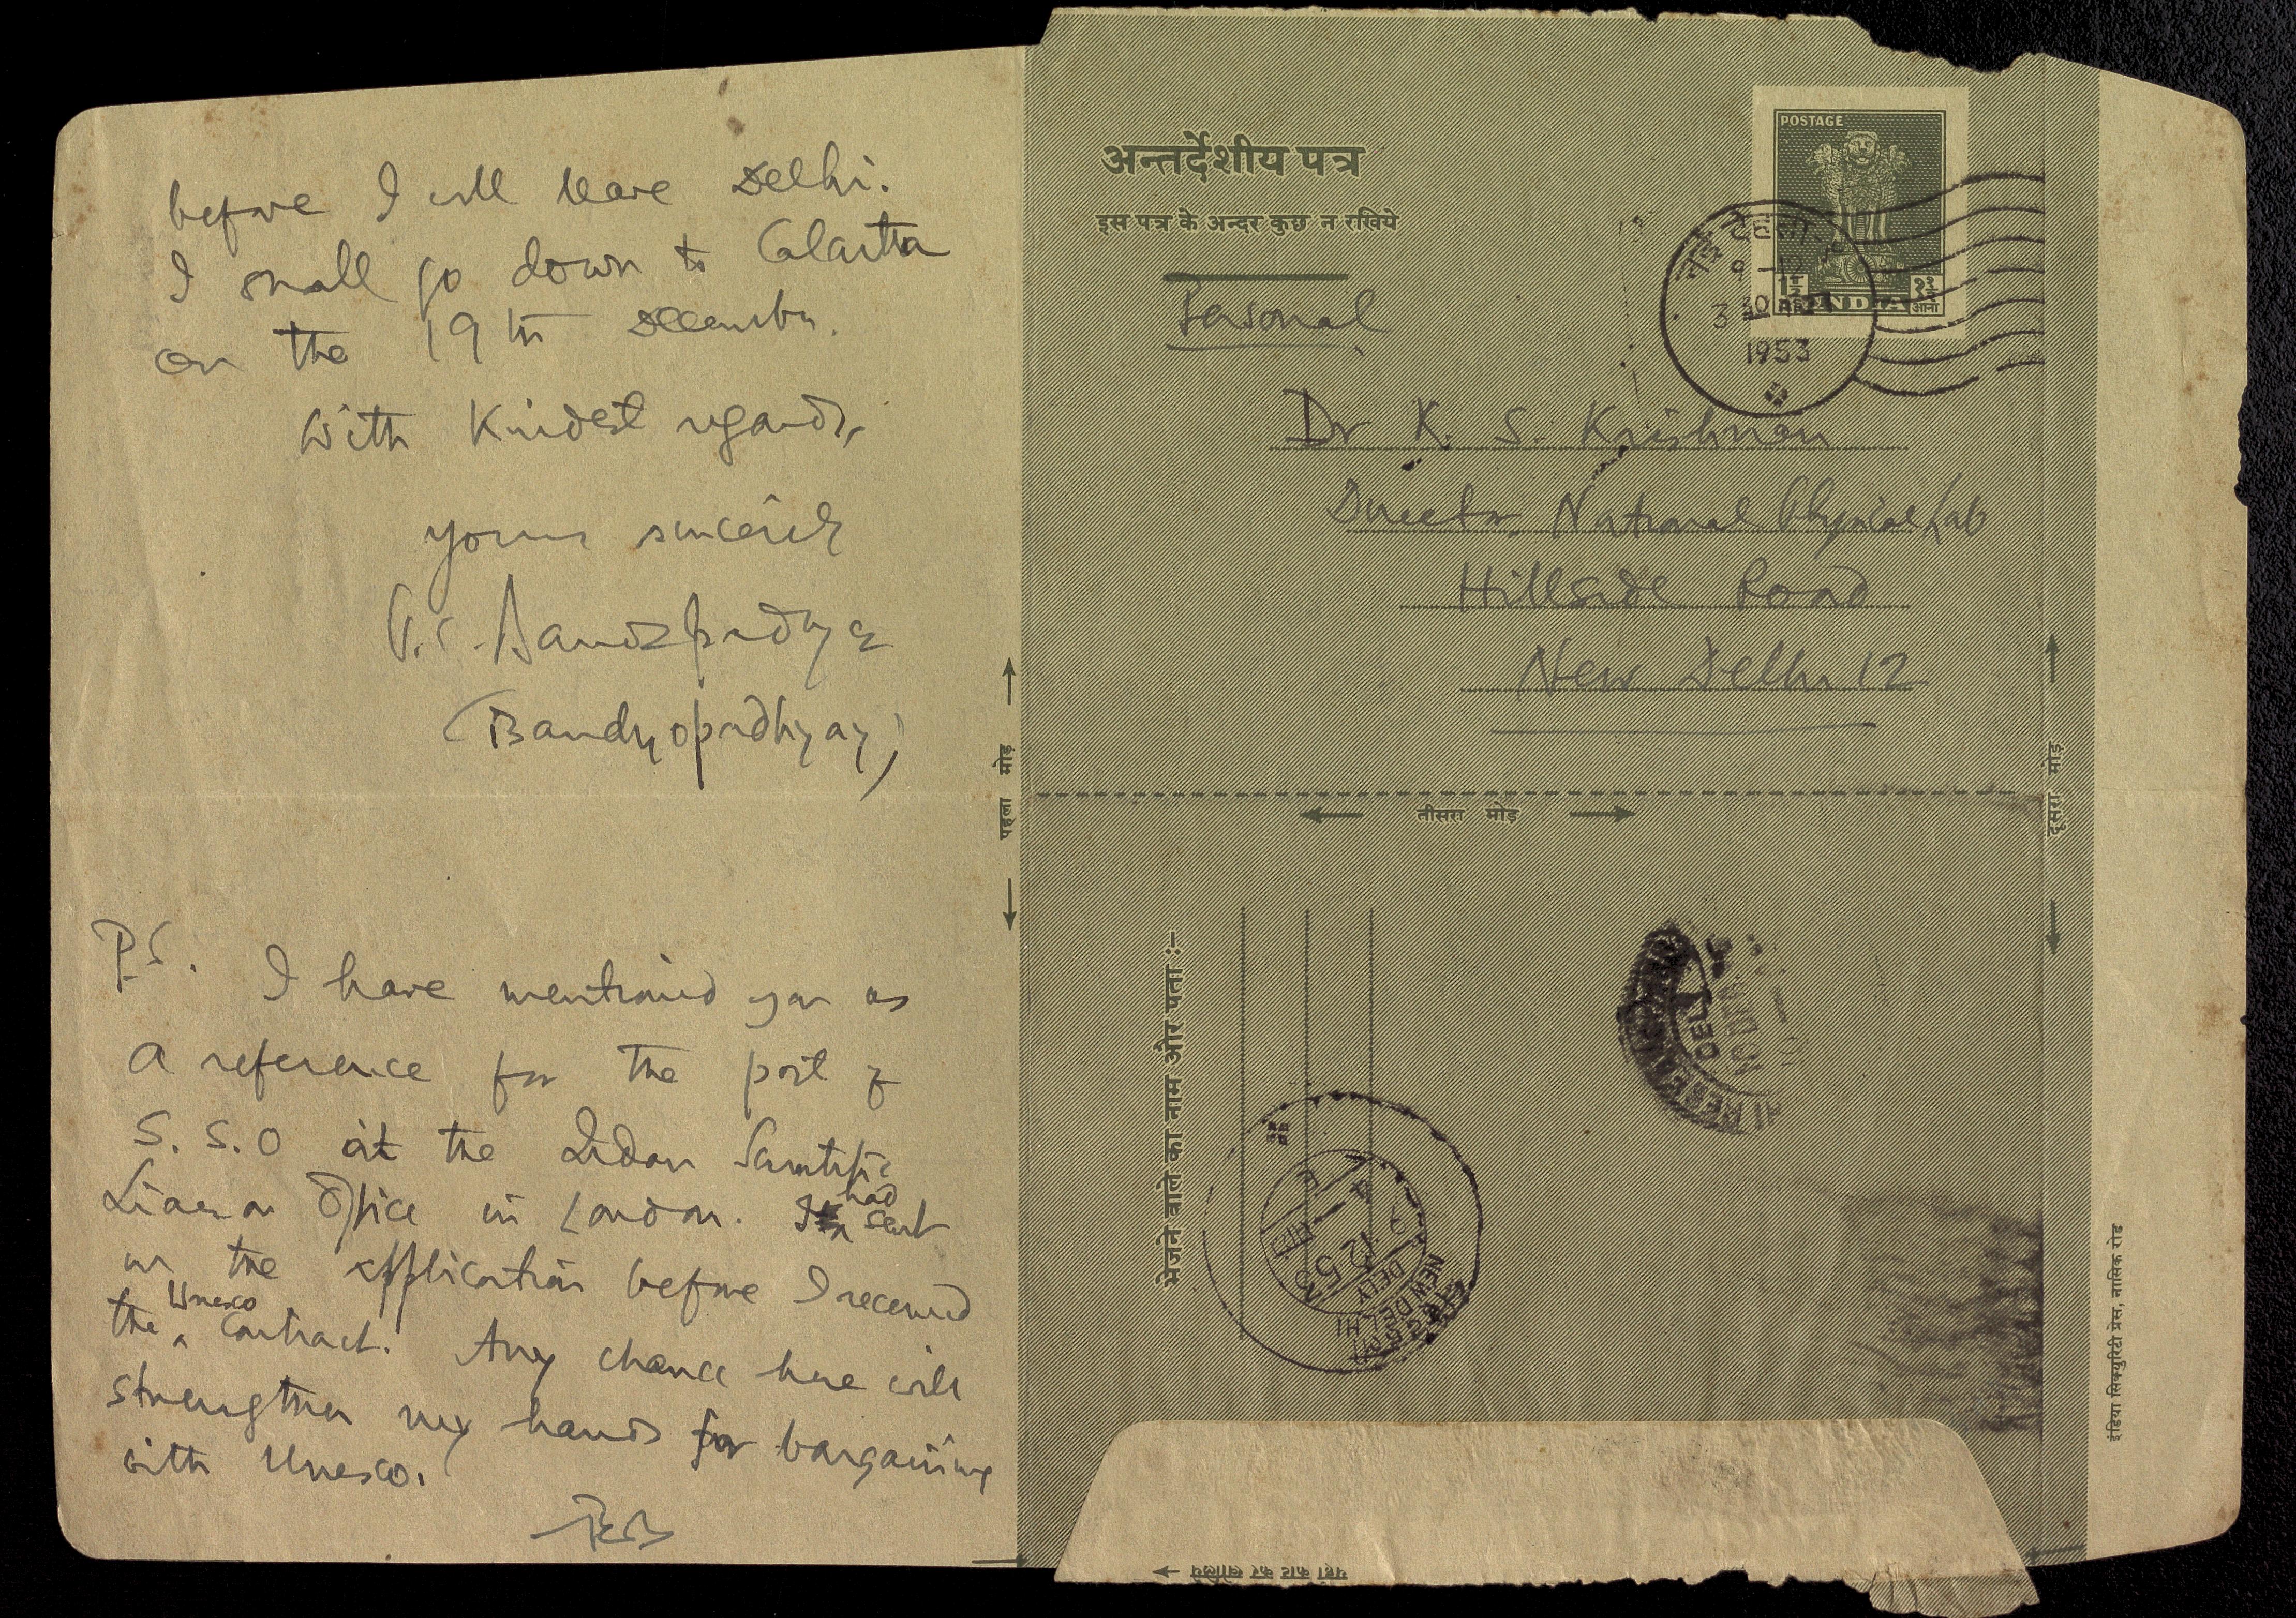 before I will leave Delhi.
I shall go down to Calcutta
on the 19th December.
With Kindest regards,
yours sincerely
(Bandyopadhyay)
P.S. I have mentioned you as
a reference for the post of
S. S. O at the Indian Scientific
Liaison Office in London. I had sent
in the application before I received
the Unesco contract. Any chance here will
strengthen my hands for bargaining
with Unesco.
अन्तर्देशीय पत्र
इस पत्र के अन्दर कुछ न रखिये
Personal
POSTAGE
INDIA
आना
नई देहली
9 - 12
3 30
1953
Dr K. S. Krishnan
Director National Physical Lab
Hillside Road
New Delhi 12
पहला मोड़
दूसरा मोड़
तीसरा मोड़
भेजने वाले का नाम और पता :—
NEW DELHI
DELY
12 53
DEL
इंडिया सिक्युरिटी प्रेस, नासिक रोड
यहां काट कर खोलिये